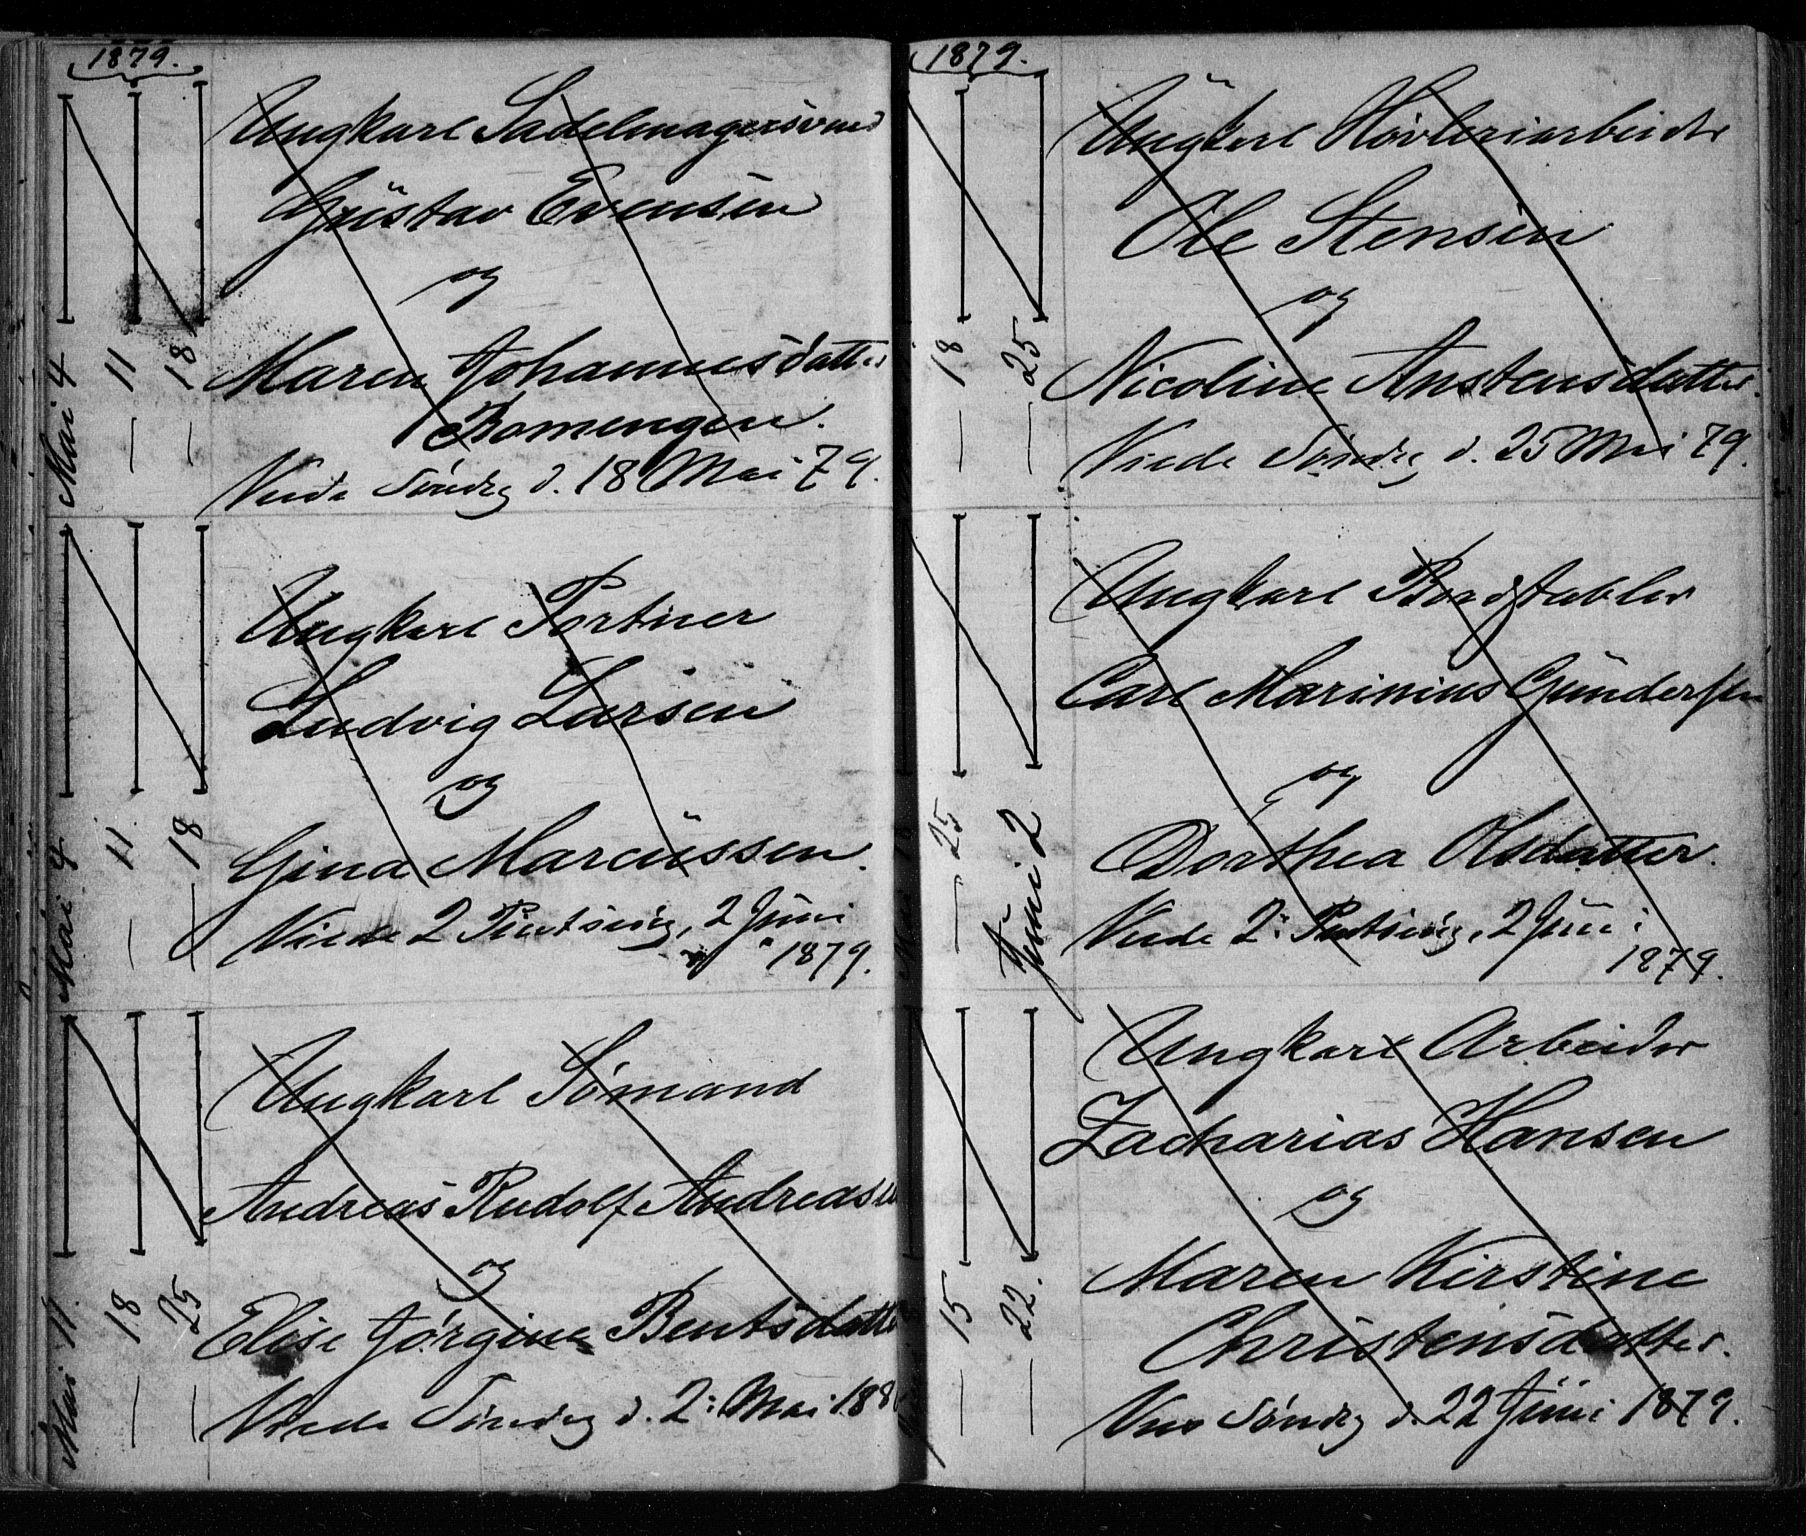 1879.
Ungkarl Sadelmagersvend
Gustav Evensen
og
Maren Johannesdatter
Romengen.
Viede Søndag d. 18 Mai 79.
Mai 4 — 11 — 18
Ungkarl Portner
Ludvig Larsen
og
Gina Marcussen.
Viede 2 Pintsedg, 2 Juni
1879.
Mai 4 — 11 — 18
Ungkarl Sømand
Andreas Rudolf Andreasen
og
Elise Jørgine Bentsdatter
Viede Søndag d. 2: Mai 188
Mai 11. — 18 — 25
1879.
Ungkarl Høvleriarbeider
Ole Stensen
og
Nicoline Anstensdatter.
Viede Søndag d. 25 Mai 79.
— 18 — 25
Ungkarl Bordstabler
Carl Marinius Gundersen
og
Dorthea Olsdatter.
Viede 2: Pintsedg, 2 Juni
1879.
— 25 Juni 2
Ungkarl Arbeider
Zacharias Hansen
og
Maren Kirstine
Christensdatter.
Søndag d. 22 Juni 1879.
— 15 — 22.